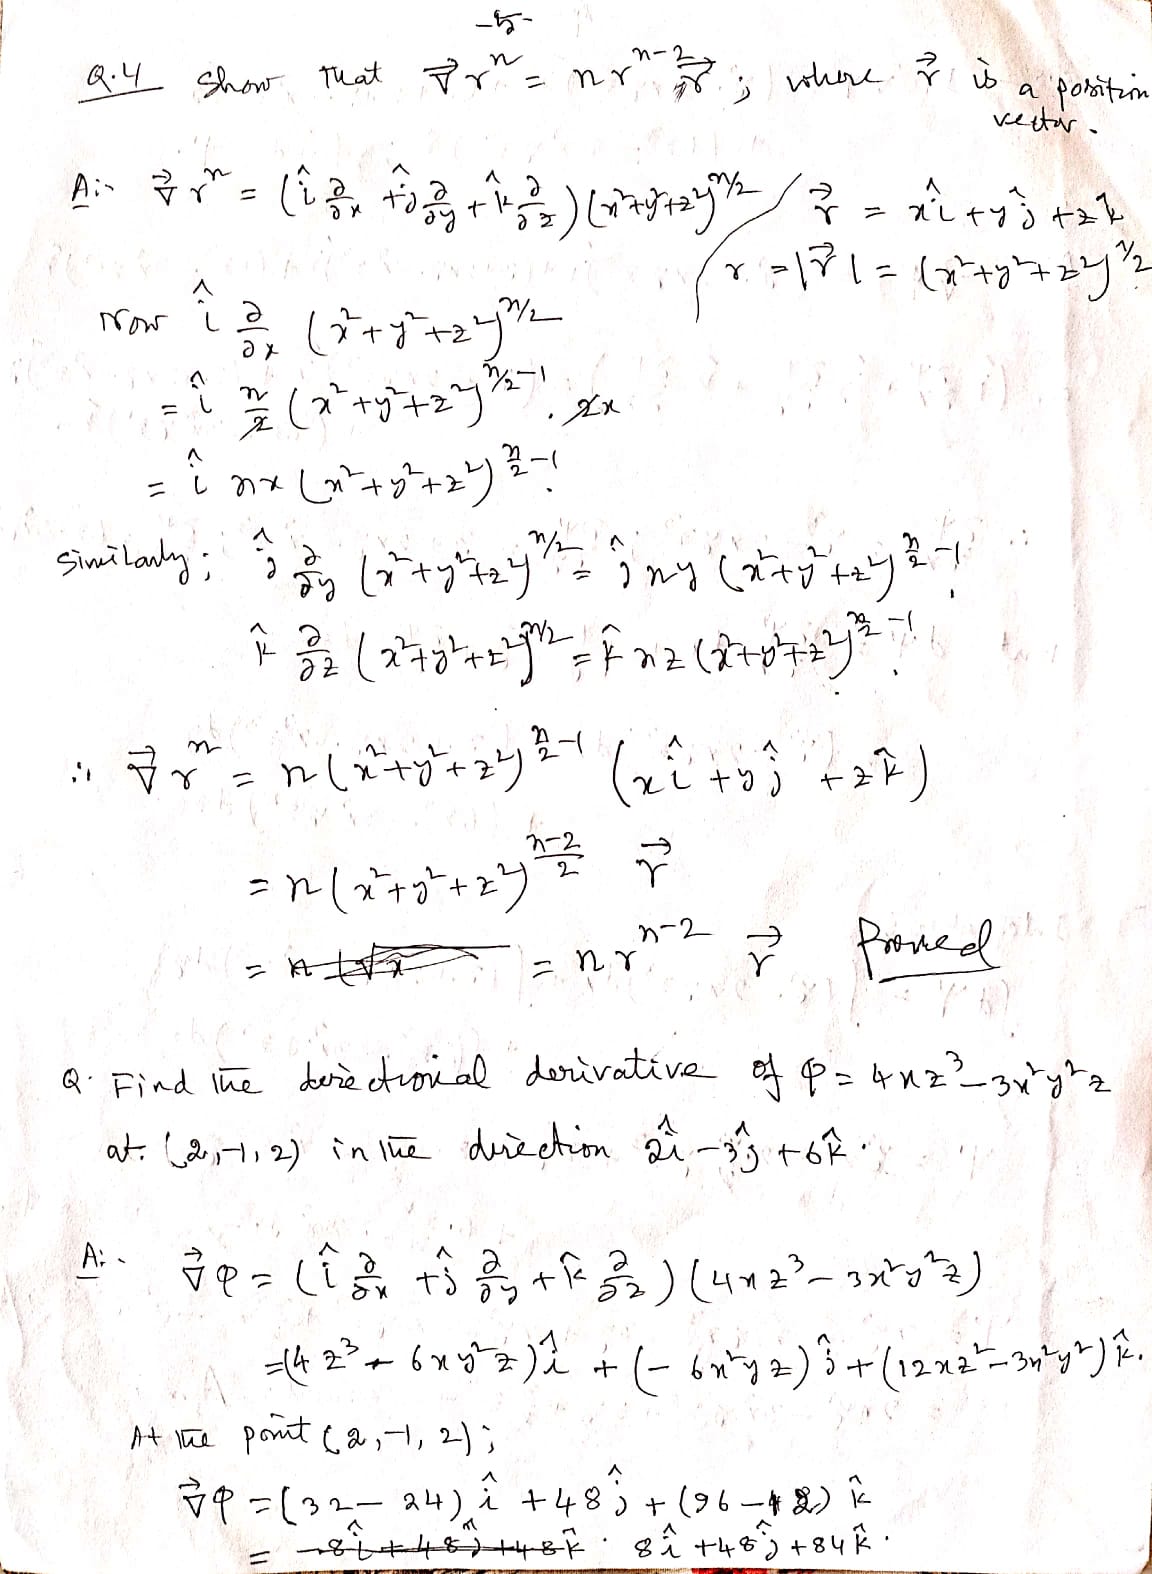 -5-
Q.4 Show that ∇⃗ rⁿ = n rⁿ⁻² r⃗ ; where r⃗ is a position
vector.
A:- ∇⃗ rⁿ = (î ∂/∂x + ĵ ∂/∂y + k̂ ∂/∂z) (x²+y²+z²)^(n/2)
r⃗ = xî + yĵ + zk̂
r = |r⃗| = (x²+y²+z²)^(1/2)
Now î ∂/∂x (x²+y²+z²)^(n/2)
= î n/2 (x²+y²+z²)^(n/2-1) . 2x
= î nx (x²+y²+z²)^(n/2-1)
Similarly; ĵ ∂/∂y (x²+y²+z²)^(n/2) = ĵ ny (x²+y²+z²)^(n/2-1)
k̂ ∂/∂z (x²+y²+z²)^(n/2) = k̂ nz (x²+y²+z²)^(n/2-1)
∴ ∇⃗ rⁿ = n (x²+y²+z²)^(n/2-1) (xî + yĵ + zk̂)
= n (x²+y²+z²)^((n-2)/2) r⃗
= = n rⁿ⁻² r⃗ Proved
Q. Find the directional derivative of φ = 4xz³ - 3x²y²z
at (2,-1,2) in the direction 2î - 3ĵ + 6k̂.
A:- ∇⃗φ = (î ∂/∂x + ĵ ∂/∂y + k̂ ∂/∂z) (4xz³ - 3x²y²z)
= (4z³ - 6xy²z) î + (- 6x²yz) ĵ + (12xz² - 3x²y²) k̂.
At the point (2,-1, 2);
∇⃗φ = (32 - 24) î + 48 ĵ + (96 - 12) k̂
= 8î + 48ĵ + 84k̂.